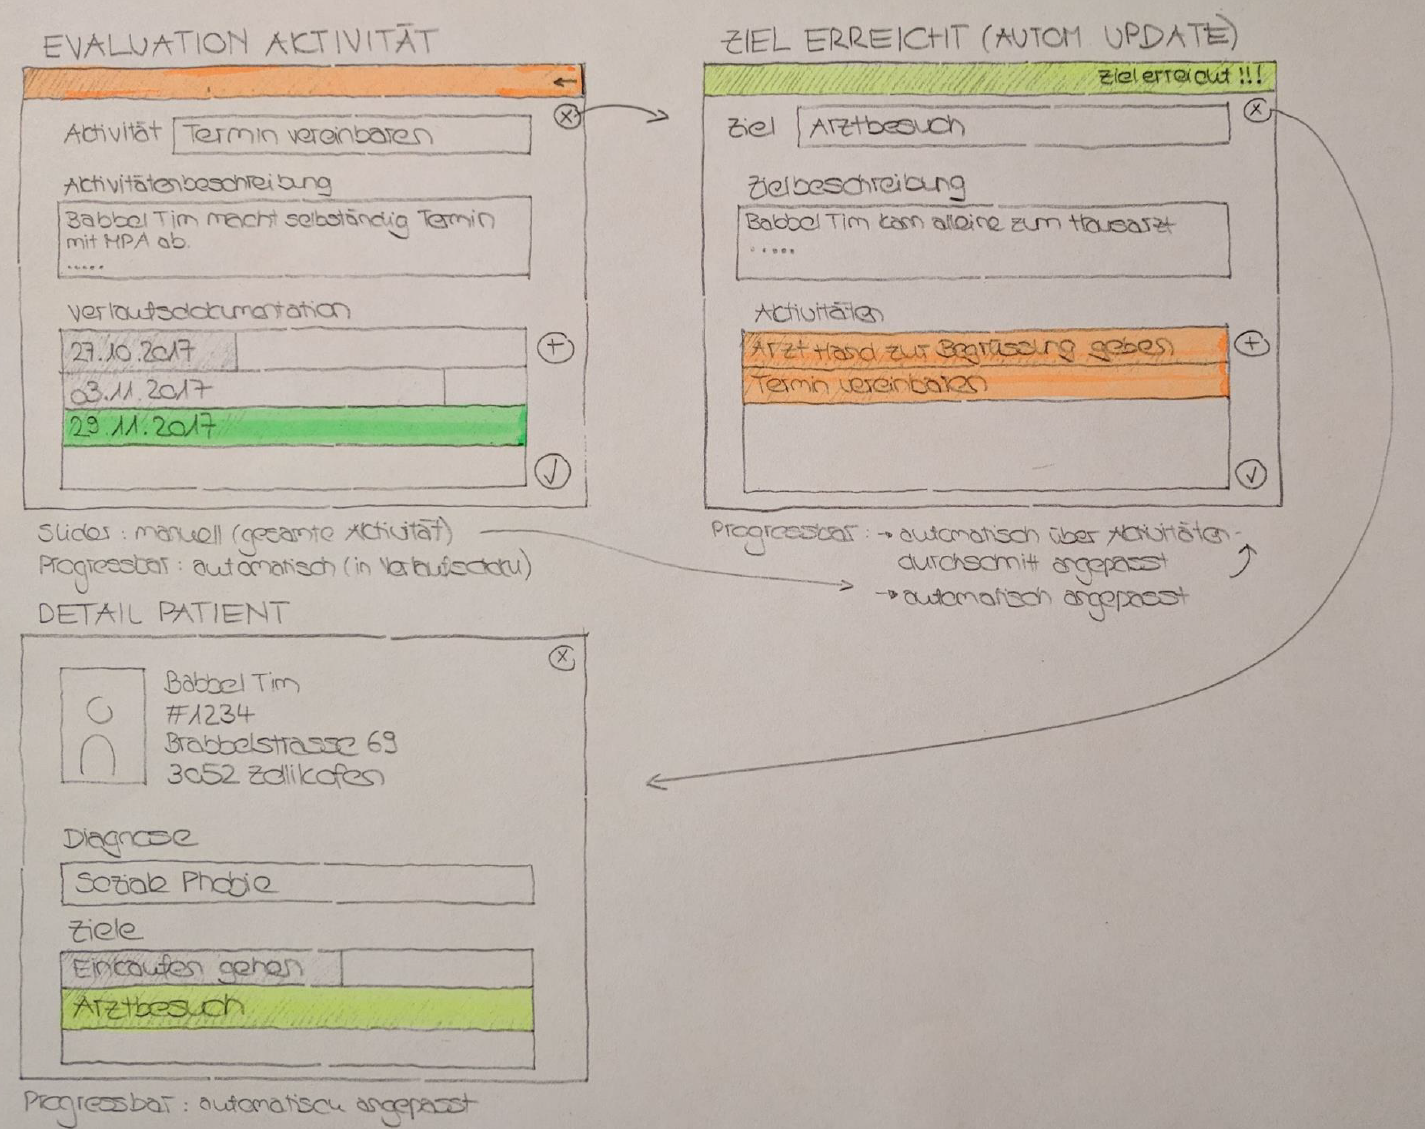 EVALUATION AKTIVITÄT
←
X
Aktivität Termin vereinbaren
Aktivitätenbeschreibung
Babbel Tim macht selbständig Termin
mit MPA ab.
.....
Verlaufsdokumentation
27.10.2017
+
03.11.2017
29.11.2017
✓
Slider: manuell (gesamte Aktivität)
Progressbar: automatisch (in Verlaufsdoku)
ZIEL ERREICHT (AUTOM UPDATE)
Ziel erreicht !!!
X
Ziel Arztbesuch
Zielbeschreibung
Babbel Tim kann alleine zum Hausarzt
.....
Aktivitäten
Arzt Hand zur Begrüssung geben
+
Termin vereinbaren
✓
Progressbar: → automatisch über Aktivitäten-
durchschnitt angepasst
→ automatisch angepasst
DETAIL PATIENT
X
Babbel Tim
#1234
Brabbelstrasse 69
3052 Zollikofen
Diagnose
Soziale Phobie
Ziele
Einkaufen gehen
Arztbesuch
Progressbar: automatisch angepasst